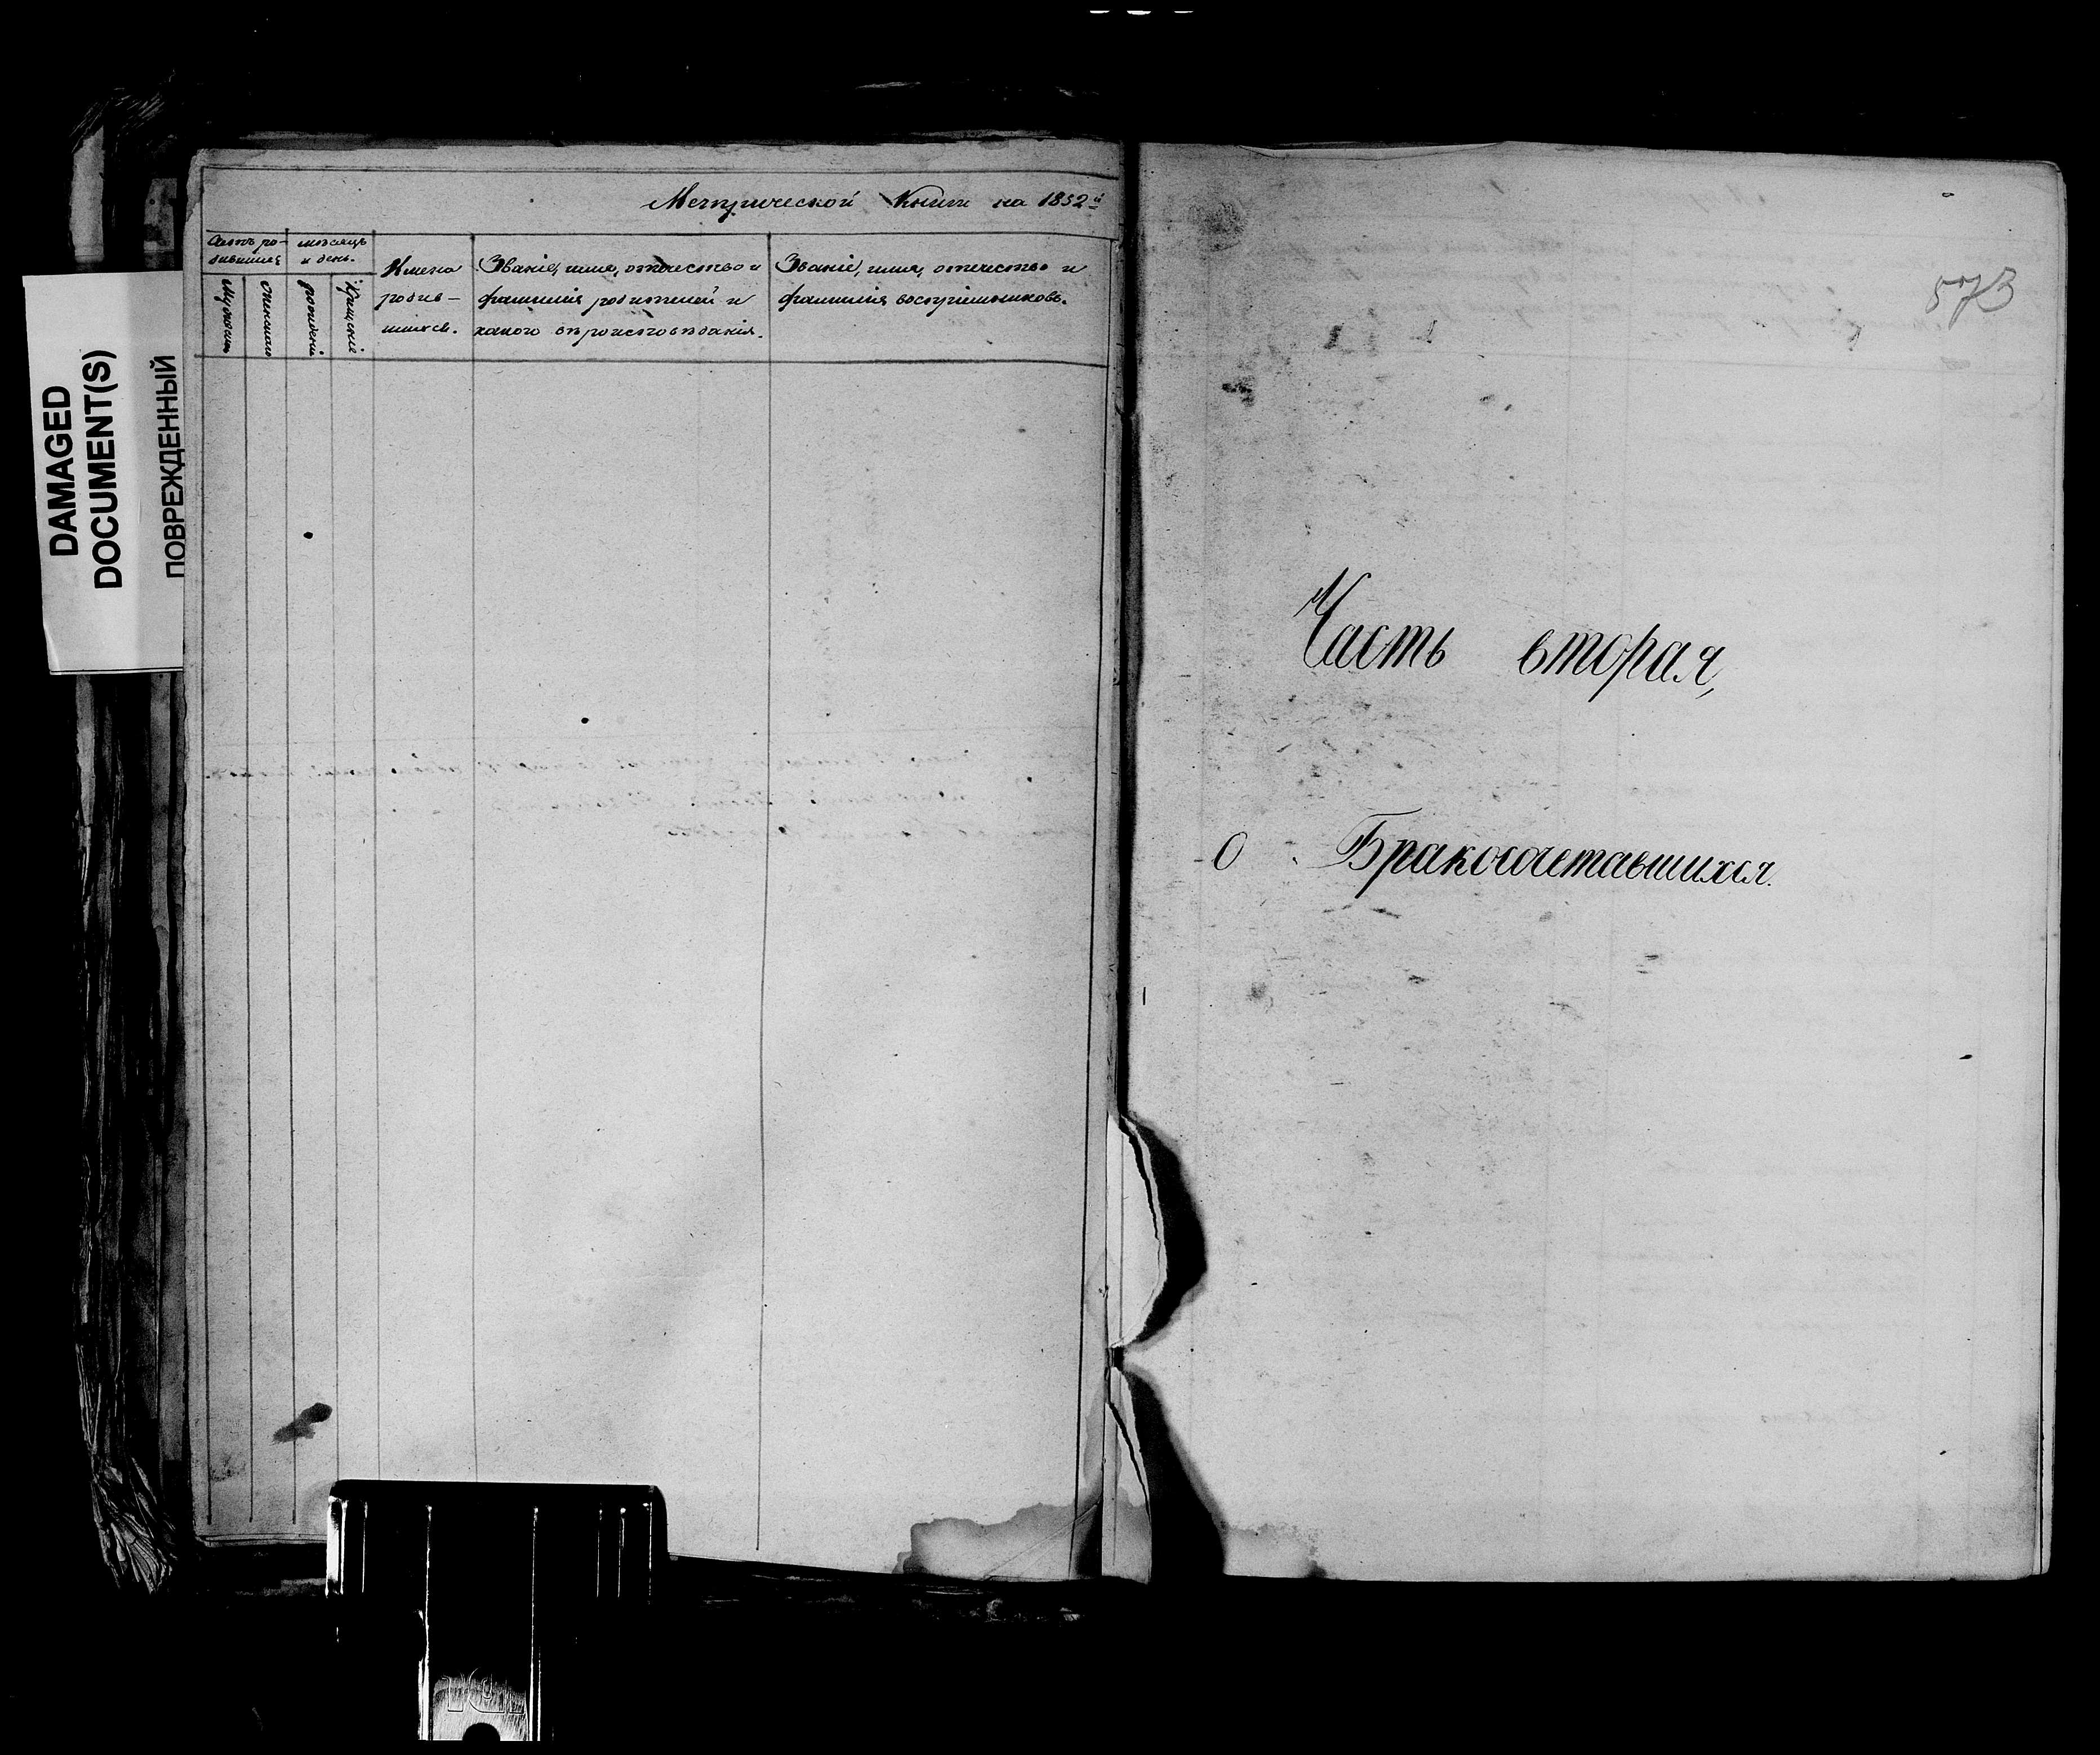 DAMAGED
DOCUMENT(S)
ПОВРЕЖДЕННЫЙ
Метрической Книги на 1852й
Счетъ ро-
дившихся
мѣсяцъ
и день.
Мужескаго
Женскаго
рожденія
Крещенія
Имена
родив-
шихся.
Званіе, имя, отчество и
фамилія родителей и
какого вѣроисповѣданія.
Званіе, имя, отчество и
фамилія воспріемниковъ.
573
Часть вторая,
О Бракосочетавшихся.